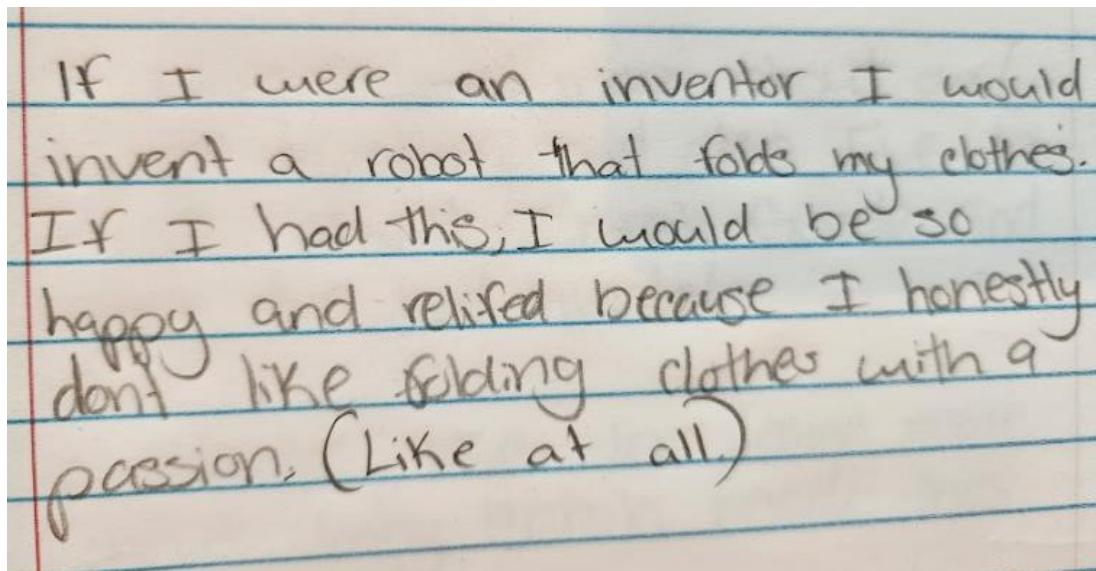 If I were an inventor I would
invent a robot that folds my clothes.
If I had this, I would be so
happy and relifed because I honestly
don't like folding clothes with a
passion. (Like at all.)